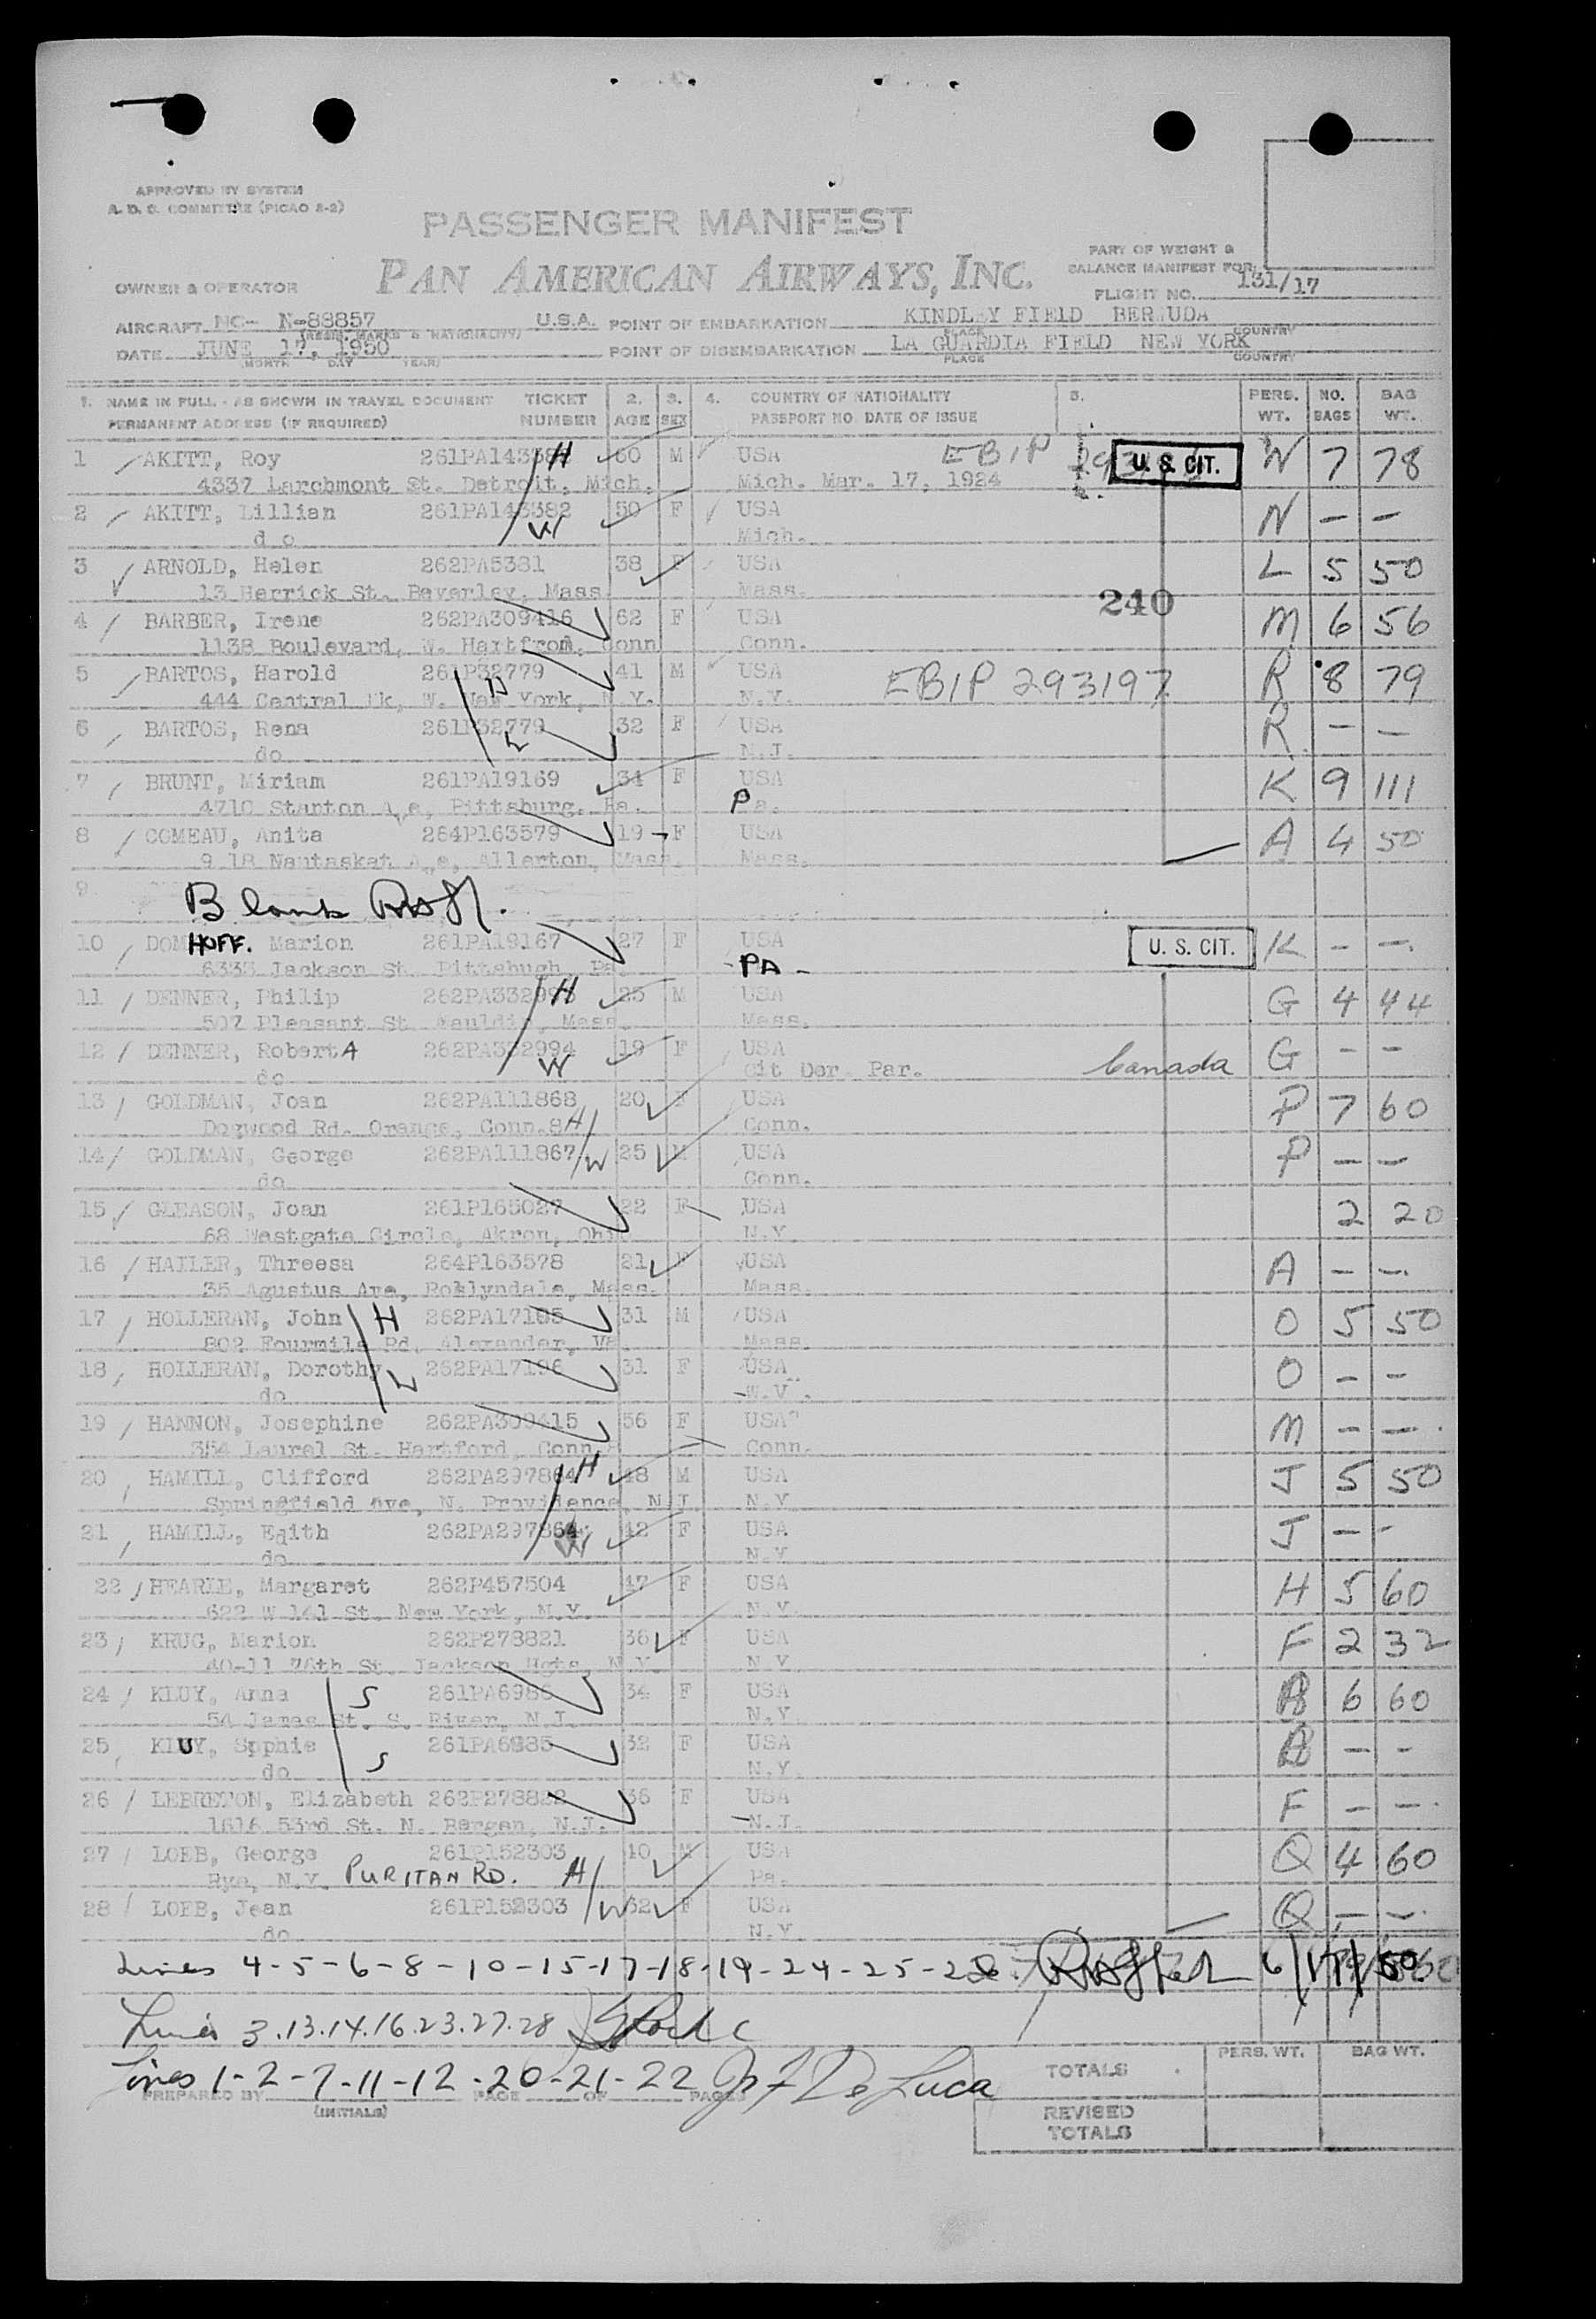 APPROVED BY SYSTEM
A. D. C. COMMITTEE (PICAO 2-2)
PASSENGER MANIFEST
PAN AMERICAN AIRWAYS, INC.
PART OF WEIGHT &
BALANCE MANIFEST FOR
OWNER & OPERATOR
FLIGHT NO. 131/17
AIRCRAFT NC- N-88857 U.S.A. POINT OF EMBARKATION KINDLEY FIELD BERMUDA
(REGIS. MARKS & NATIONALITY) PLACE COUNTRY
DATE JUNE 17, 1950 POINT OF DISEMBARKATION LA GUARDIA FIELD NEW YORK
MONTH DAY YEAR) PLACE COUNTRY
1. NAME IN FULL - AS SHOWN IN TRAVEL DOCUMENT TICKET 2. 3. 4. COUNTRY OF NATIONALITY 5. PERS. NO. BAG
PERMANENT ADDRESS (IF REQUIRED) NUMBER AGE SEX PASSPORT NO. DATE OF ISSUE WT. BAGS WT.
1 AKITT, Roy H M USA EBIP U. S. CIT. W 7 78
4337 Larchmont St. Detroit, Mich. Mich. Mar. 17, 1924
2 AKITT, Lillian 261PA143382 W 50 F USA N - -
do Mich.
3 ARNOLD, Helen 262PA5381 38 F USA L 5 50
13 Herrick St. Beverley, Mass Mass.
240
4 BARBER, Irene 262PA309416 62 F USA M 6 56
1138 Boulevard, W. Hartfrod, Conn Conn.
5 BARTOS, Harold 261P32779 41 M USA EBIP 293197 R 8 79
444 Central Pk, W. New York, N.Y. N.Y.
6 BARTOS, Rena 261P32779 32 F USA R - -
do N.J.
7 BRUNT, Miriam 261PA19169 34 F USA K 9 111
4710 Stanton Ave, Pittsburg, Pa. Pa.
8 COMEAU, Anita 264P163579 19 F USA A 4 50
9 18 Nantasket Ave, Allerton, Mass. Mass.
9 Blank
10 HOFF. Marion 261PA19167 27 F USA U. S. CIT. K - -
6335 Jackson St. Pittsbugh, Pa. PA -
11 DENNER, Philip H 25 M USA G 4 44
507 Pleasant St Mass. Mass.
12 DENNER, Roberta 262PA332994 W 19 F USA G - -
do Cit Der. Par. Canada
13 GOLDMAN, Joan 262PA111868 20 F USA P 7 60
Dogwood Rd. Orange, Conn. H Conn.
14 GOLDMAN, George 262PA111867 W 25 M USA P - -
do Conn.
15 GLEASON, Joan 261P165027 22 F USA 2 20
68 Westgate Circle, Akron, Ohio N.Y
16 HAILER, Threesa 264P163578 21 F USA A - -
35 Agustus Ave, Roslyndale, Mass. Mass.
17 HOLLERAN, John H 262PA17185 31 M USA O 5 50
802 Fourmile Rd. Alexander, Va Mass.
18 HOLLERAN, Dorothy W 262PA17196 31 F USA O - -
do W.V.
19 HANNON, Josephine 262PA309415 56 F USA M - -
354 Laurel St. Hartford, Conn. Conn.
20 HAMILL, Clifford 262PA297864 H 48 M USA J 5 50
Springfield Ave, N. Providence, N.J. N.Y
21 HAMILL, Edith 262PA297864 W 42 F USA J - -
do N.Y
22 HEARLE, Margaret 262P457504 47 F USA H 5 60
622 W 141 St. New York, N.Y. N.Y.
23 KRUG, Marion 262P278821 36 F USA F 2 32
40-11 76th St. Jackson Hghs, N.Y. N.Y
24 KLUY, Anna S 261PA6986 34 F USA 6 60
54 James St. S. River, N.J. N.Y.
25 KLUY, Sophie S 261PA6985 32 F USA - -
do N.Y.
26 LEBRETON, Elizabeth 262P278822 36 F USA F - -
1616 53rd St. N. Bergen, N.J. N.J.
27 LOEB, George 261P152303 40 M USA Q 4 60
Rye, N.Y. PURITAN RD. H Pa.
28 LOEB, Jean 261P152303 W 32 F USA Q - -
do N.Y
Lines 4-5-6-8-10-15-17-18-19-24-25-26. 6/17/50
Lines 3.13.14.16.23.27.28
Lines 1-2-7-11-12-20-21-22 De Luca
PREPARED BY PAGE OF PAGES
(INITIALS)
PERS. WT. BAG WT.
TOTALS
REVISED
TOTALS